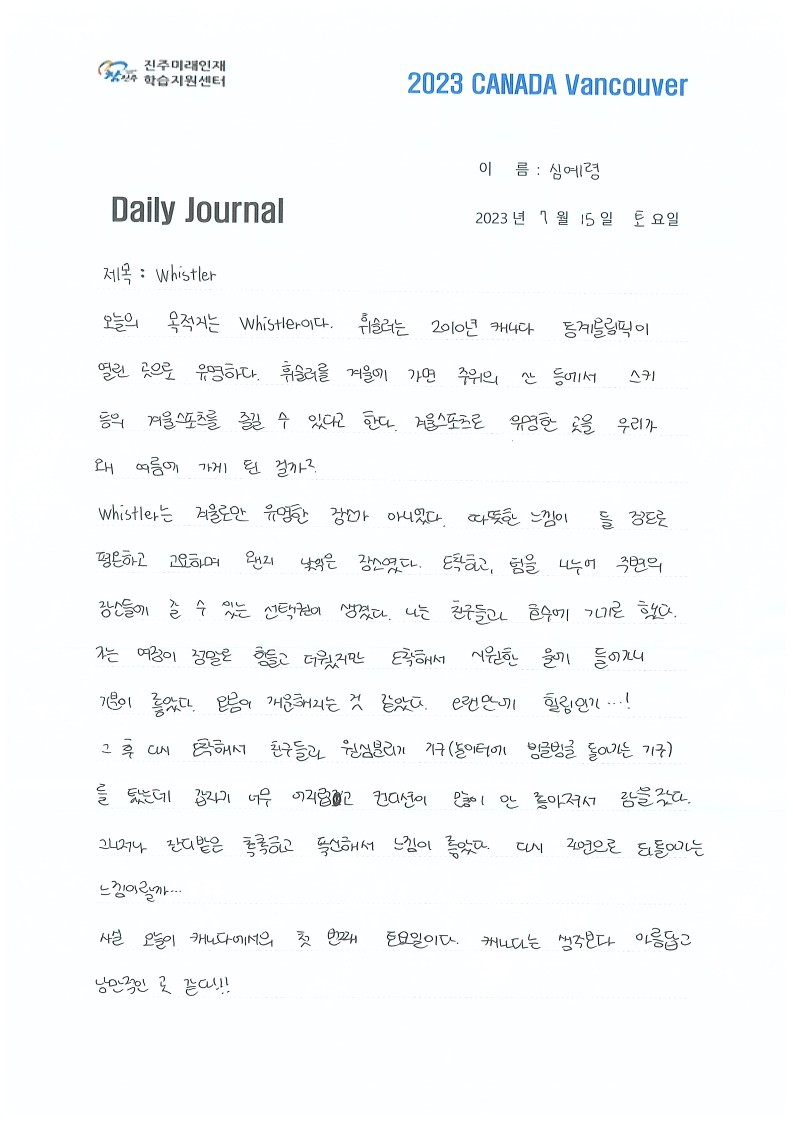 진주미래인재
학습지원센터
2023 CANADA Vancouver
이 름 : 심예령
Daily Journal
2023 년 7 월 15 일 토 요일
제목 : Whistler
오늘의 목적지는 Whistler이다. 휘슬러는 2010년 캐나다 동계올림픽이
열린 곳으로 유명하다. 휘슬러를 겨울에 가면 주위의 산 등에서 스키
등의 겨울스포츠를 즐길 수 있다고 한다. 겨울스포츠로 유명한 곳을 우리가
왜 여름에 가게 된 걸까?
Whistler는 겨울로만 유명한 장소가 아니였다. 따뜻한 느낌이 들 정도로
평온하고 고요하며 왠지 낯익은 장소였다. 도착하고, 팀을 나누어 주변의
장소들에 갈 수 있는 선택권이 생겼다. 나는 친구들과 호수에 가기로 했다.
가는 여정이 정말로 힘들고 더웠지만 도착해서 시원한 물에 들어가니
기분이 좋았다. 온몸이 개운해지는 것 같았다. 오랜만에 힐링인가…!
그 후 다시 도착해서 친구들과 원심분리기 기구(놀이터에 빙글빙글 돌아가는 기구)
를 탔는데 갑자기 너무 어지럽고 컨디션이 많이 안 좋아져서 잠을 잤다.
그러나 잔디밭은 촉촉하고 폭신해서 느낌이 좋았다. 다시 자연으로 되돌아가는
느낌이랄까…
사실 오늘이 캐나다에서의 첫 번째 토요일이다. 캐나다는 생각보다 아름답고
낭만적인 곳 같다!!